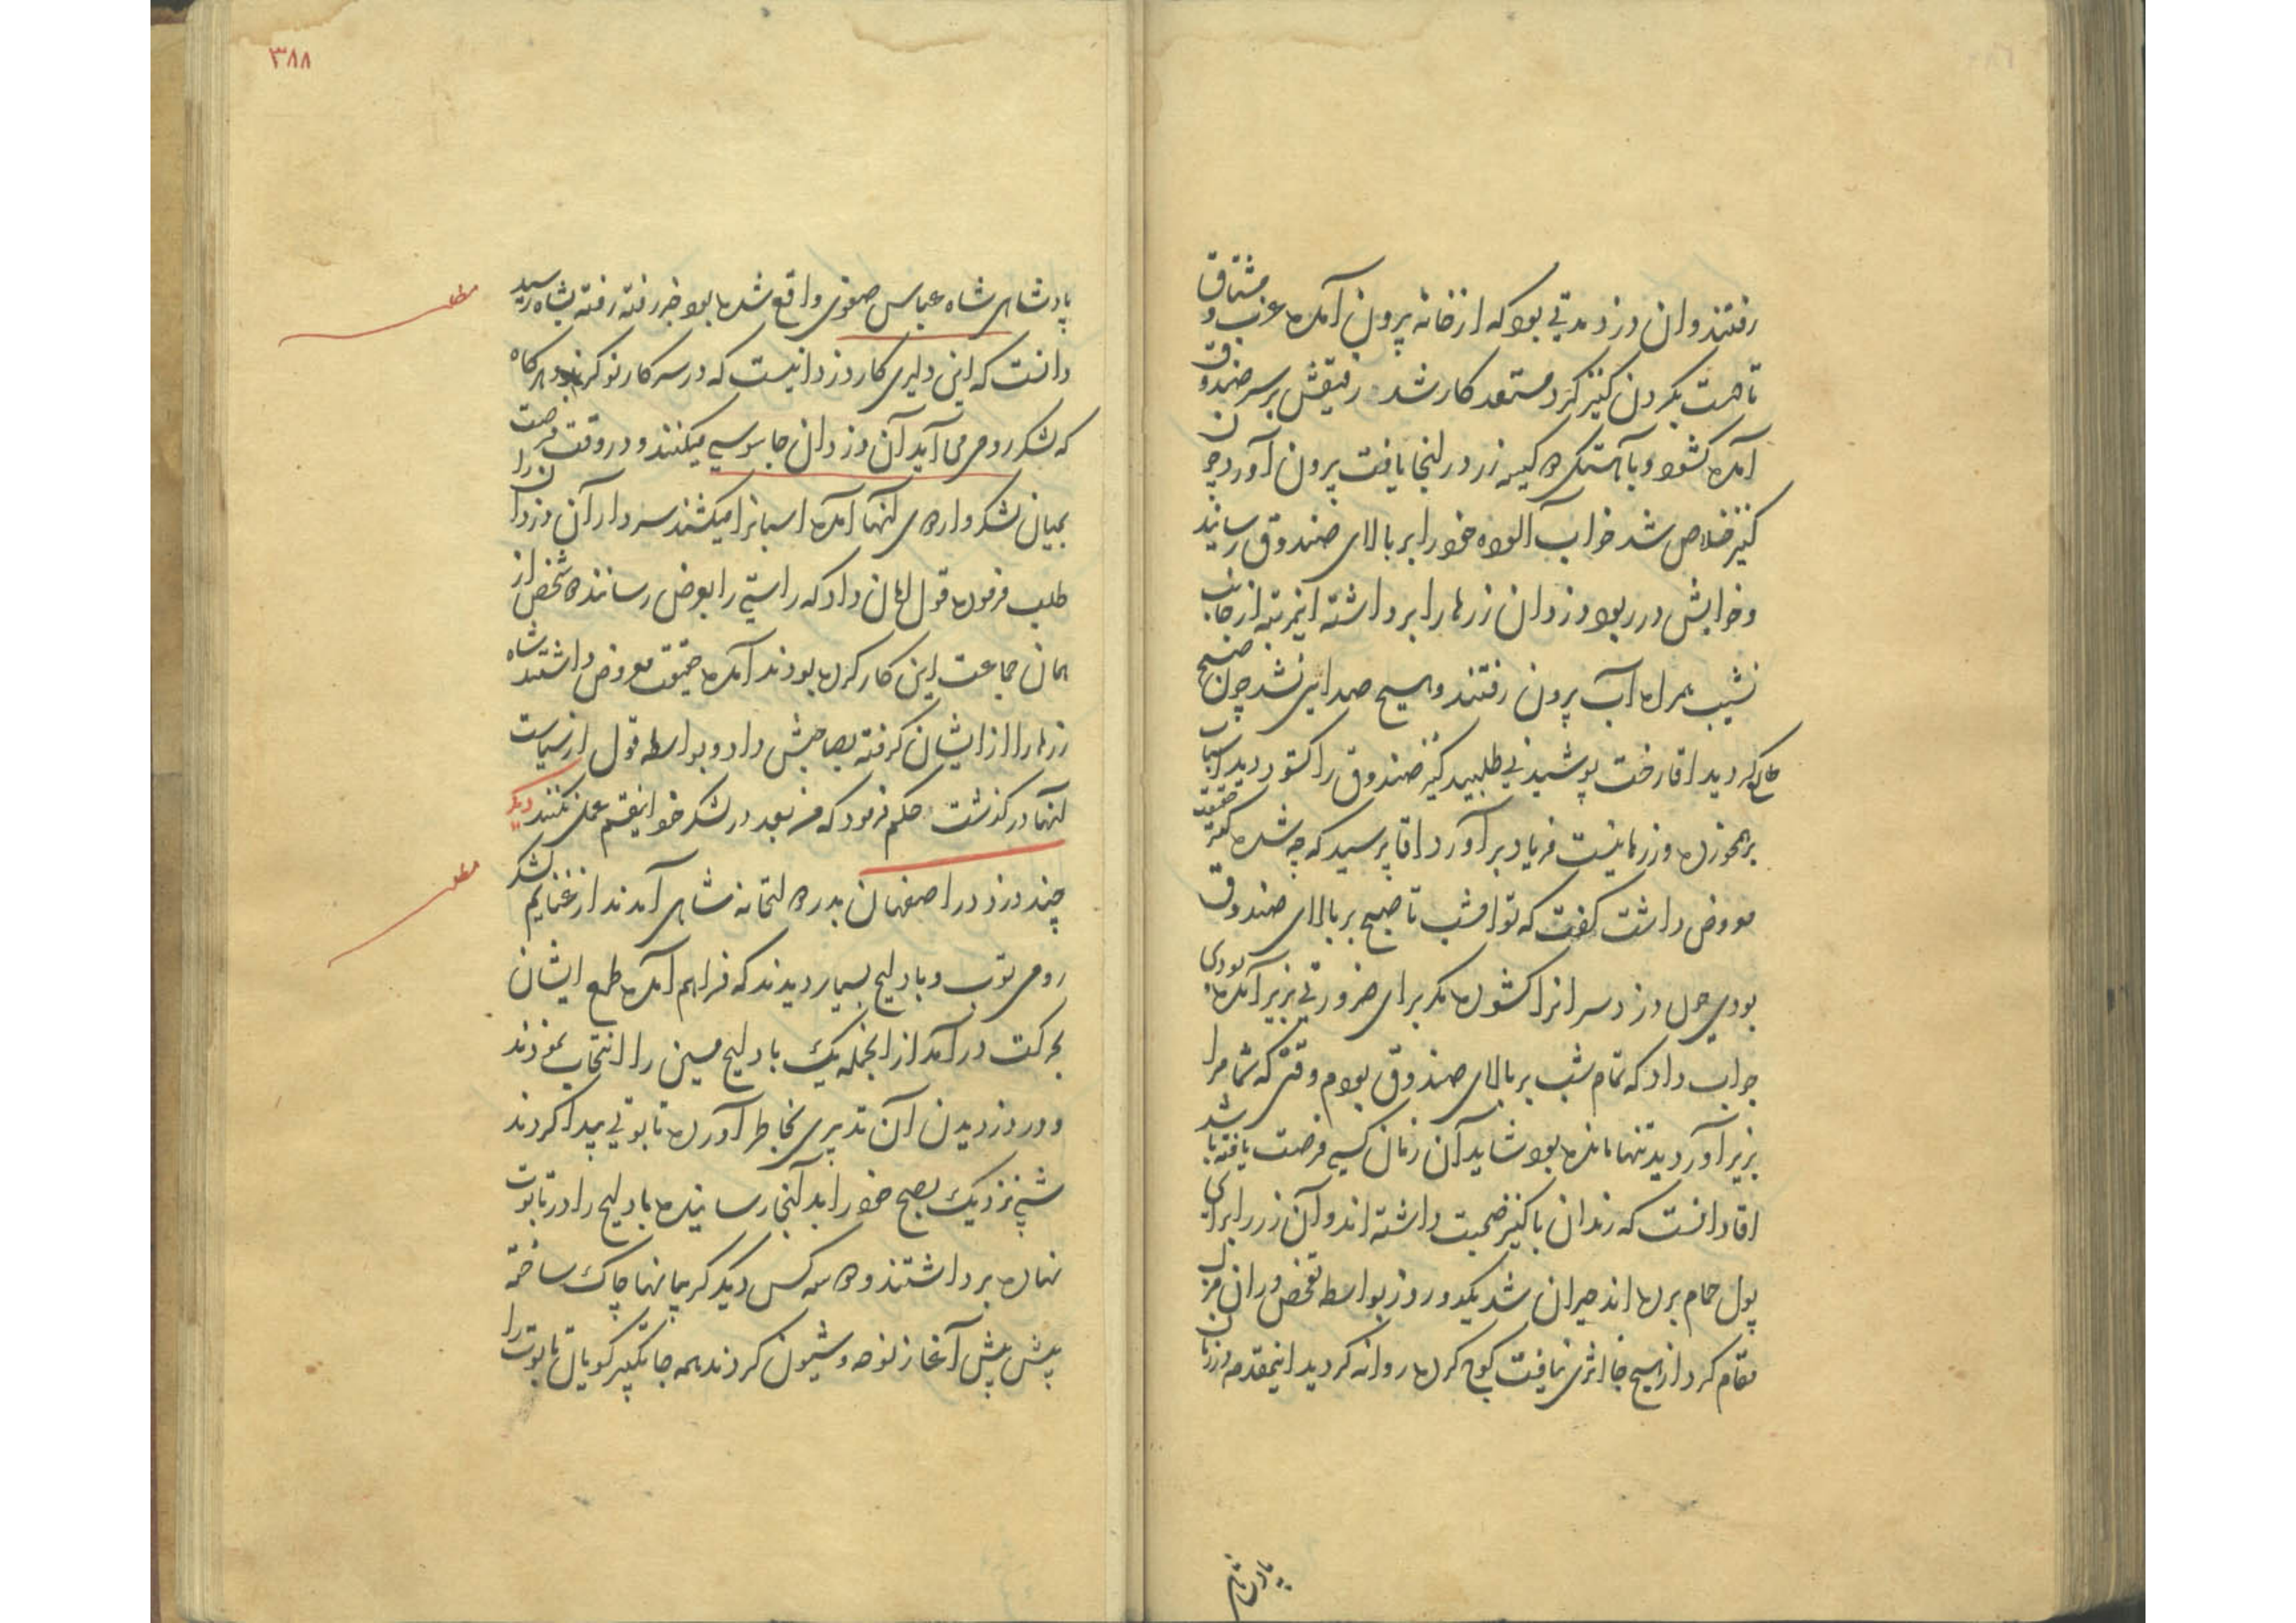 رفتند و ان دزد مدتی بود که از خانه بیرون آمده عزب و مشتاق
تا دست بگردن کنیز کرد مستعد کار شد رفیقش بر سر صندوق
آمده کشود و باهستکی کیسه زر در انجا یافت بیرون آورد چون
کنیز خلاص شد خواب آلوده خود را بر بالای صندوق رسانید
و خوابش در ربود دزدان زرها را برداشته اینمرتبه از جانب
نشیب همراه آب بیرون رفتند و هیچ صدایی نشد چون صبح
طالع کردید اقا رخت پوشیدنی طلبید کنیز صندوق را کشود دید اسباب
برهمخورده و زرها نیست فریاد برآورد اقا پرسید که چه شده کنیز حقیقت
معروض داشت کفت که تو امشب تا صبح بر بالای صندوق
بودی چون دزد سر انرا کشوده مکر برای ضرورتی بزیر آمده بودی
جواب داد که تمام شب بر بالای صندوق بودم وقتی که شما مرا
بزیر آوردید تنها مانده بود شاید آن زمان کسی فرصت یافته باشد
اقا دانست که رندان با کنیز صحبت داشته اند و آن زر را برای
پول حمام برده اند حیران شد یکدو روز بواسطه تفحص در ان منزل
مقام کرد از هیچ جا اثری نیافت کوچ کرده روانه کردید اینمقدمه در زمان
پادشاهی
٣٨٨
پادشاهی شاه عباس صفوی واقع شده بود خبر رفته رفته بشاه رسید
دانست که این دلیری کار دزدانیست که در سرکار نوکرند و هرکاه
که لشکر رومی می آید آن دزدان جاسوسی میکنند و در وقت فرصت
بمیان لشکر و اردوی انها آمده اسبانرا میکشند سردار آن دزدان را
طلب فرموده قول امان داد که راستی را بعرض رسانند شخص از
همان جماعت این کار کرده بودند آمده حقیقت معروض داشتند شاه
زرها را از ایشان کرفته بصاحبش داد و بواسطه قول از سیاست
انها درکذشت حکم فرمود که من بعد در لشکر خود اینقسم عمل نکنند دیکر
مطلب
چند دزد در اصفهان بدر دولتخانه شاهی آمدند از غنایم لشکر
مطلب
رومی توپ و بادلیج بسیار دیدند که فراهم آمده طمع ایشان
بحرکت درآمد از انجمله یک بادلیج مسین را انتخاب نمودند
و در دزدیدن آن تدبیری بخاطر آورده تابوتی پیدا کردند
شبی نزدیک بصبح خود را بدانجا رسانیده بادلیج را در تابوت
نهاده برداشتند و دو سه کس دیکر کریبانها چاک ساخته
پیش پیش آغاز نوحه و شیون کردند همه جا تکبیر کویان تابوت را